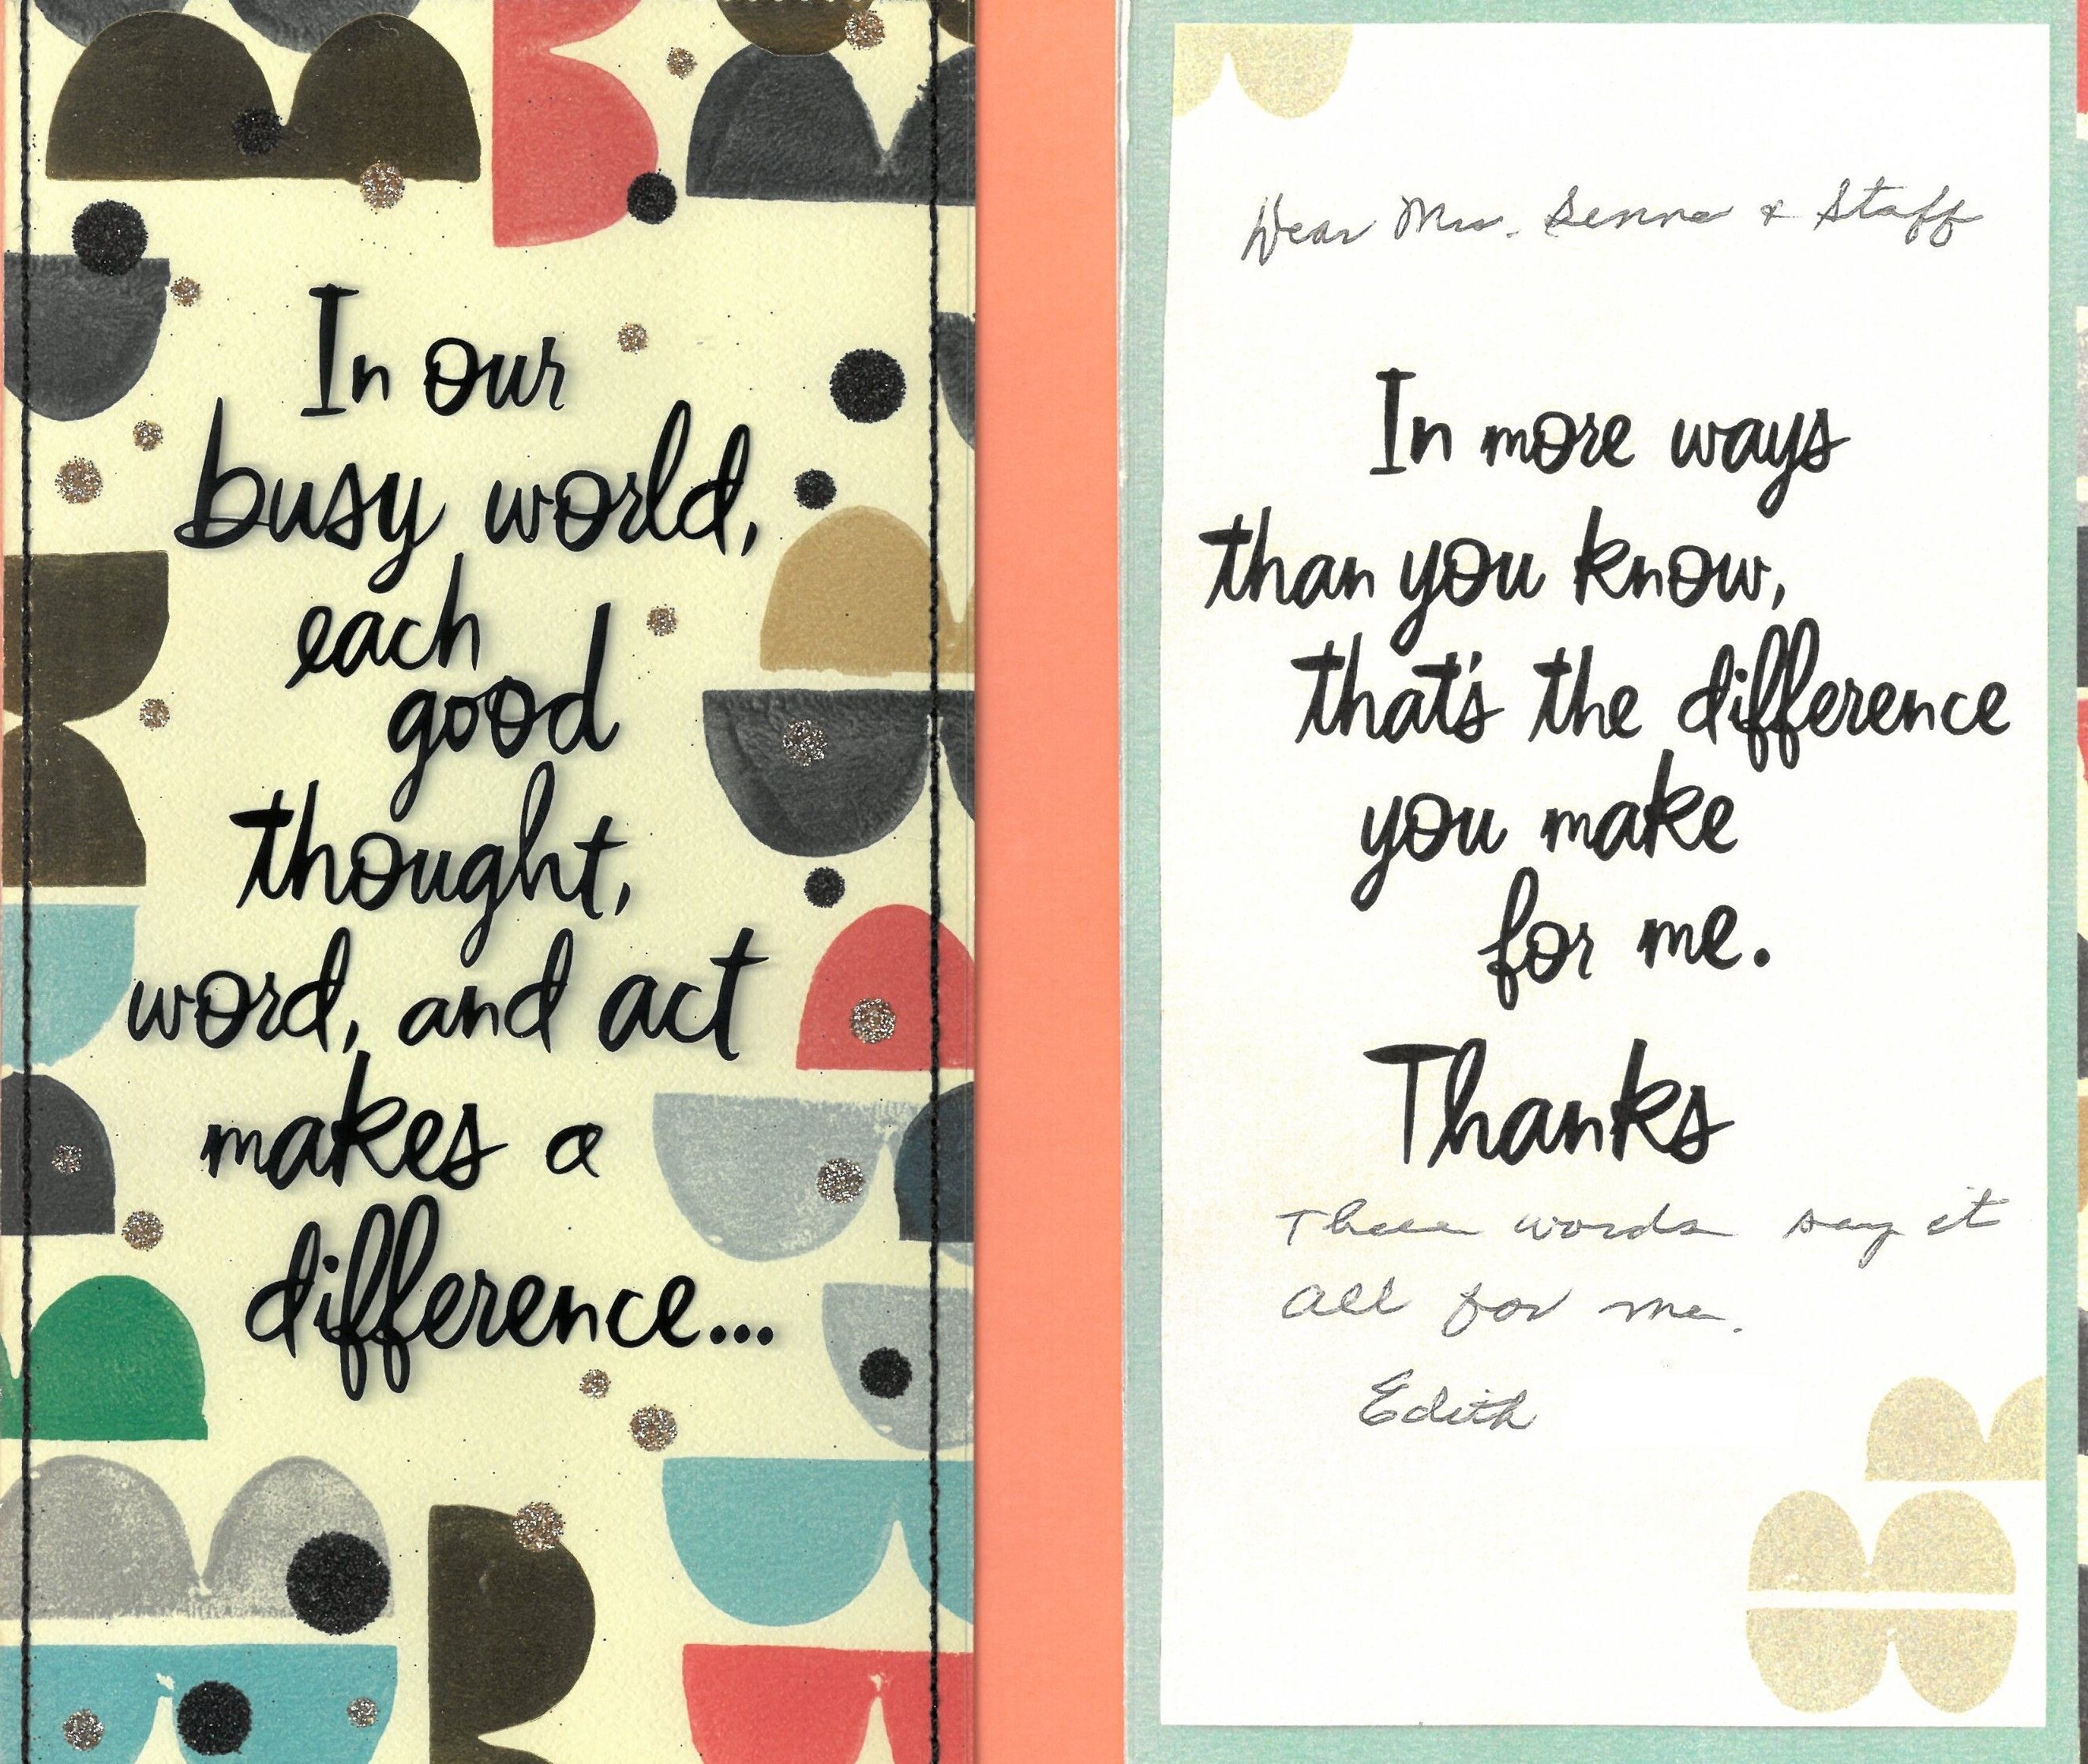 In our
busy world,
each
good
thought,
word, and act
makes a
difference...
Dear Mrs. Senna & Staff
In more ways
than you know,
that's the difference
you make
for me.
Thanks
These words say it
all for me.
Edith